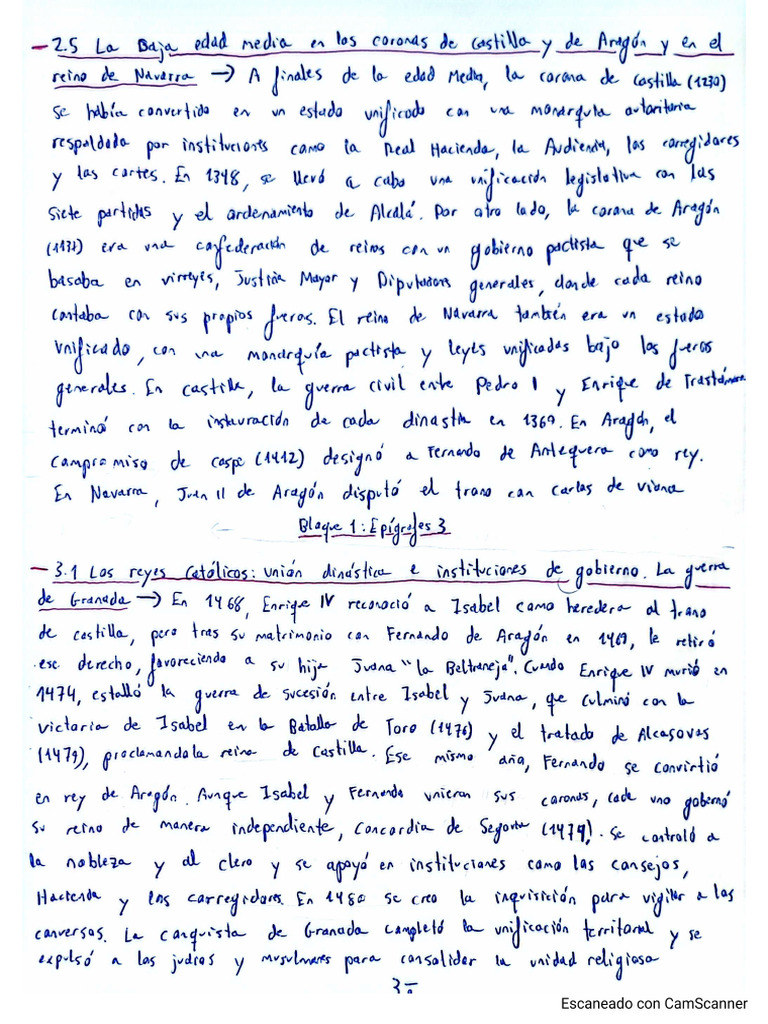 - 2.5 La Baja edad media en las coronas de Castilla y de Aragón y en el
reino de Navarra → A finales de la edad Media, la corona de Castilla (1230)
se había convertido en un estado unificado con una monarquía autoritaria
respaldada por instituciones como la Real Hacienda, la Audiencia, los corregidores
y las cortes. En 1348, se llevó a cabo una unificación legislativa con las
Siete partidas y el ordenamiento de Alcalá. Por otro lado, la corona de Aragón
(1137) era una confederación de reinos con un gobierno pactista que se
basaba en virreyes, Justicia Mayor y Diputaciones generales, donde cada reino
contaba con sus propios fueros. El reino de Navarra también era un estado
unificado, con una monarquía pactista y leyes unificadas bajo los fueros
generales. En castilla, la guerra civil ente Pedro I y Enrique de Trastámara
terminó con la instauración de cada dinastía en 1369. En Aragón, el
compromiso de caspe (1412) designó a Fernando de Antequera como rey.
En Navarra, Juan II de Aragón disputó el trono con carlos de viana
Bloque 1: Epígrafes 3
- 3.1 Los reyes Católicos: unión dinástica e instituciones de gobierno. La guerra
de Granada → En 1468, Enrique IV reconoció a Isabel como heredera al trono
de castilla, pero tras su matrimonio con Fernando de Aragón en 1469, le retiró
ese derecho, favoreciendo a su hija Juana "la Beltraneja". Cuando Enrique IV murió en
1474, estalló la guerra de sucesión entre Isabel y Juana, que culminó con la
victoria de Isabel en la Batalla de Toro (1476) y el tratado de Alcaçovas
(1479), proclamandola reina de Castilla. Ese mismo año, Fernando se convirtió
en rey de Aragón. Aunque Isabel y Fernando unieran sus coronas, cada uno gobernó
su reino de manera independiente, Concordia de Segovia (1474). Se controló a
la nobleza y al clero y se apoyó en instituciones como los consejos,
Hacienda y los corregidores. En 1480 se creo la inquisición para vigilar a los
conversos. La conquista de Granada completó la unificación territorial y se
expulsó a los judíos y musulmanes para consolidar la unidad religiosa
Escaneado con CamScanner